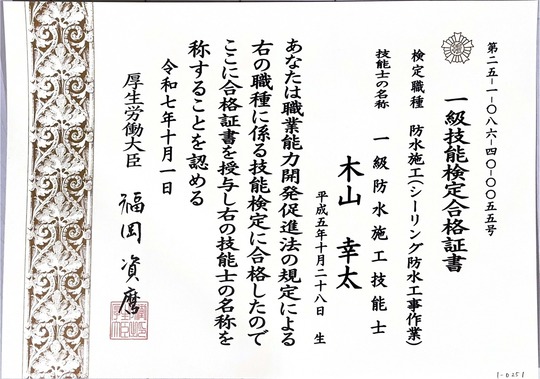 第二五-一-〇八六-四〇-〇〇五五号
一級技能検定合格証書
検定職種　防水施工(シーリング防水工事作業)
技能士の名称　一級防水施工技能士
木山　幸太
平成五年十月二十八日　生
あなたは職業能力開発促進法の規定による
右の職種に係る技能検定に合格したので
ここに合格証書を授与し右の技能士の名称を
称することを認める
令和七年十月一日
厚生労働大臣　福岡資麿
1-0251